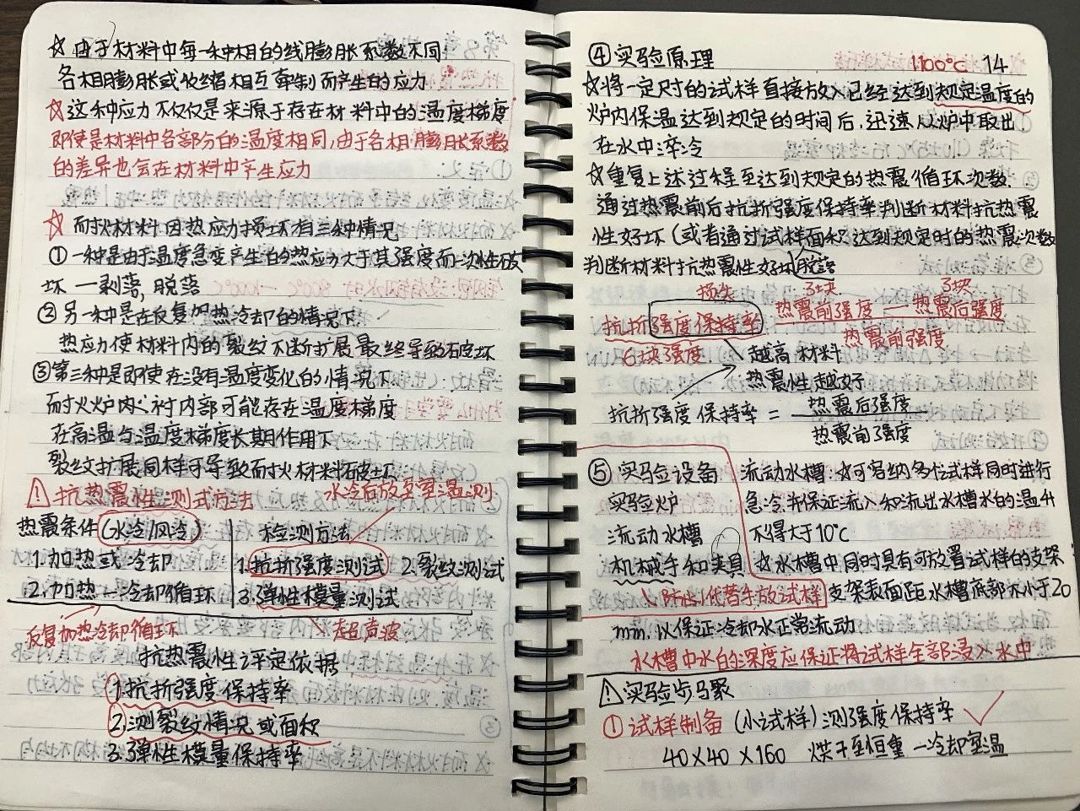 ☆ 由于材料中每一种相的线膨胀系数不同
各相膨胀或收缩相互牵制而产生的应力
☆这种应力不仅仅是来源于存在材料中的温度梯度
即使是材料中各部分的温度相同,由于各相膨胀系数
的差异也会在材料中产生应力
☆ 耐火材料因热应力损坏有三种情况
① 一种是由于温度急变产生的热应力大于其强度而一次性破
坏 — 剥落, 脱落
② 另一种是在反复加热冷却的情况下
热应力使材料内的裂纹不断扩展最终导致破坏
③第三种是即使在没有温度变化的情况下
耐火炉内衬内部可能存在温度梯度
在高温与温度梯度长期作用下
裂纹扩展同样可导致耐火材料破坏
⚠ 抗热震性测试方法 水冷后放至室温测
热震条件(水冷/风冷) 检测方法
1.加热或冷却 1.抗折强度测试 2.裂纹测试
2.加热—冷却循环 3.弹性模量测试
反复加热冷却循环 超声波
抗热震性评定依据
1.抗折强度保持率
2.测裂纹情况或面积
3.弹性模量保持率
④ 实验原理 1100℃ 14
☆将一定尺寸的试样直接放入已经达到规定温度的
炉内保温达到规定的时间后,迅速从炉中取出
在水中淬冷
☆重复上述过程至达到规定的热震循环次数.
通过热震前后抗折强度保持率判断材料抗热震
性好坏(或者通过试样面积达到规定时的热震次数
判断材料抗热震性好坏) 脱落
损失 3块 3块
抗折强度保持率 热震前强度 — 热震后强度
热震前强度
6块强度 越高材料
热震性越好
抗折强度保持率 = 热震后强度
热震前强度
⑤ 实验设备 流动水槽:☆可容纳多个试样同时进行
实验炉 急冷并保证流入和流出水槽水的温升
流动水槽 不得大于10℃
机械手和夹具 ☆水槽中同时具有可放置试样的支架
代替手放试样 支架表面距水槽底部不小于20
mm.以保证冷却水正常流动
水槽中水的深度应保证将试样全部浸入水中
⚠实验步骤
① 试样制备 (小试样) 测强度保持率 ✓
40×40×160 烘干至恒重 — 冷却室温